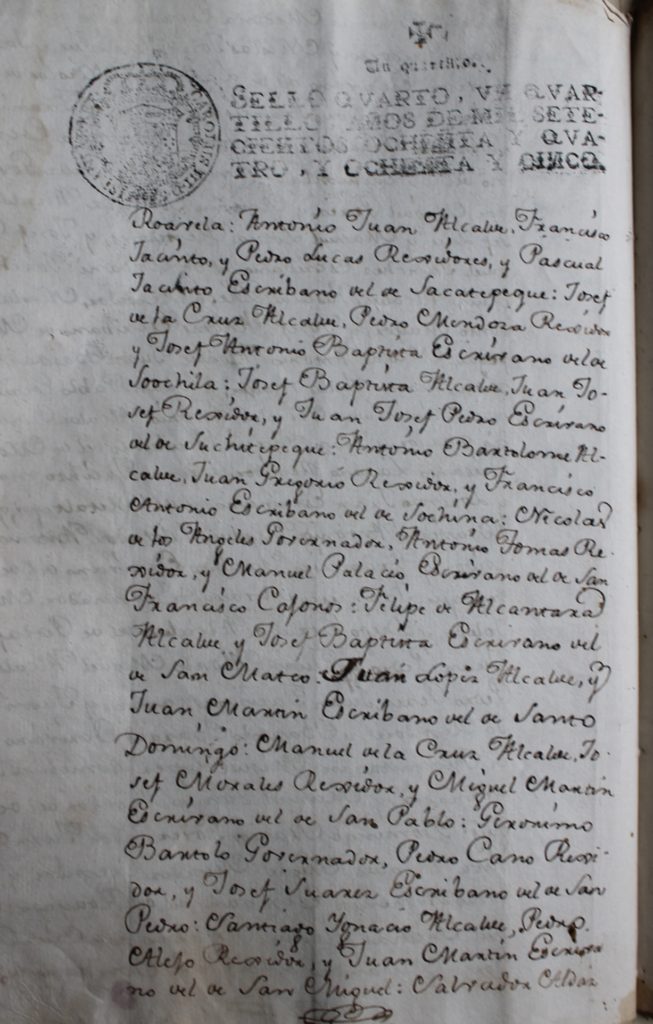 Un quartillo.
SELLO QVARTO, VN QVAR-
TILLO AÑOS DE MIL SETE-
CIENTOS OCHENTA Y QVA-
TRO, Y OCHENTA Y CINCO.
Antonio Juan Alcalde, Francisco
Jacinto, y Pedro Lucas Rexidores, y Pascual
Jacinto Escribano del de Sacatepeque: Josef
de la Cruz Alcalde, Pedro Mendoza Rexidor
y Josef Antonio Baptista Escrivano del de
Soochila: Josef Baptista Alcalde, Juan Jo-
sef Rexidor, y Juan Josef Pedro Escrivano
del de Suchitepeque: Antonio Bartolome Al-
calde, Juan Gregorio Rexidor, y Francisco
Antonio Escribano del de Sochina: Nicolas
de los Angeles Governador, Antonio Tomas Re-
xidor, y Manuel Palacio Escrivano del de San
Francisco Cosonos: Felipe de Alcantara
Alcalde y Josef Baptista Escrivano del
de San Mateo: Juan Lopez Alcalde, y
Juan Martin Escribano del de Santo
Domingo: Manuel de la Cruz Alcalde, Jo-
sef Morales Rexidor, y Miguel Martin
Escrivano del de San Pablo: Geronimo
Bartolo Governador, Pedro Cano Rexi-
dor, y Josef Suarez Escribano del de San
Pedro: Santiago Ygnacio Alcalde, Pedro
Alejo Rexidor, y Juan Martin Escriva
no del de San Miguel: Salvador Aldaz